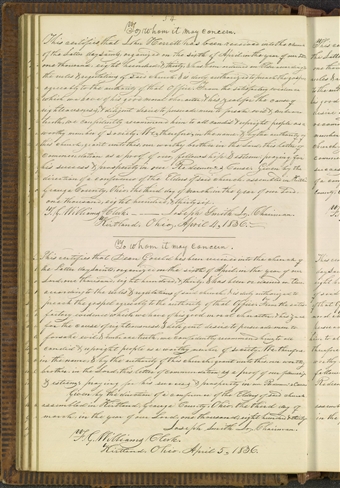 To whom it may concern.
This certifies that John Gould has been received into the church
of the Latter day Saints, organized on the sixth of April in the year of our Lord
one thousand, eight hundred & thirty, & has been ordained
the rules & regulations of said church, & is duly authorized to preach the gospel
agreably to the authority of that Office. From the satisfactory evidence
which we have of his good moral character, & his zeal for the cause
of righteousness, & diligent desire to persuade men to forsake evil, & embrace
truth, we confidently recommend him to all candid & upright people as a
worthy member of society. We, therefore, in the name, & by the authority of
this church, grant unto this our worthy brother in the Lord, this letter of
commendation as a proof of our fellowship & esteem: praying for
his success & prosperity in our Redeemer's cause. Given by the
direction of a conference of the Elders of said church assembled in Kirtland
Geauga County, Ohio, the third day of March, in the year of our Lord, one
thousand, eight hundred & thirty six.
F. G. Williams Clerk. Joseph Smith Jr. Chairman.
Kirtland, Ohio, April 4, 1836.
To whom it may concern.
This certifies that Dean Gould has been received into the church of
the Latter day Saints, organized on the sixth of April, in the year of our
Lord, one thousand, eight hundred & thirty, & has been ordained
according to the rules & regulations of said church, & is duly authorized to
preach the gospel agreably to the authority of that Office. From the satis-
factory evidence which we have of his good moral character, & his zeal
for the cause of righteousness, & diligent desire to persuade men to
forsake evil, & embrace truth, we confidently recommend him to all
candid & upright people as a worthy member of society. We, therefore
in the name, & by the authority of this church, grant unto this, our worthy
brother in the Lord, this letter of commendation as a proof of our fellowship
& esteem: praying for his success, & prosperity in our Redeemer's cause.
Given by the direction of a conference of the Elders of said church
assembled in Kirtland, Geauga County, Ohio, the third day of
March, in the year of our Lord, one thousand, eight hundred & thirty
Joseph Smith Jr. Chairman.
F. G. Williams Clerk.
Kirtland, Ohio. April 5, 1836.